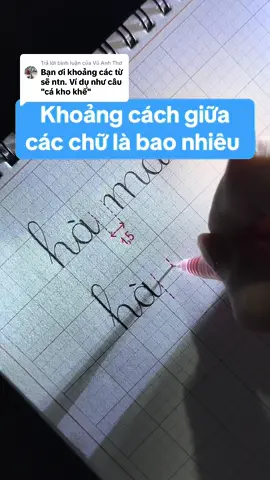 Trả lời bình luận của Vũ Anh Thơ
Bạn ơi khoảng các từ
sẽ ntn. Ví dụ như câu
"cá kho khế"
Khoảng cách giữa
các chữ là bao nhiêu
hà ma
1,5
hà